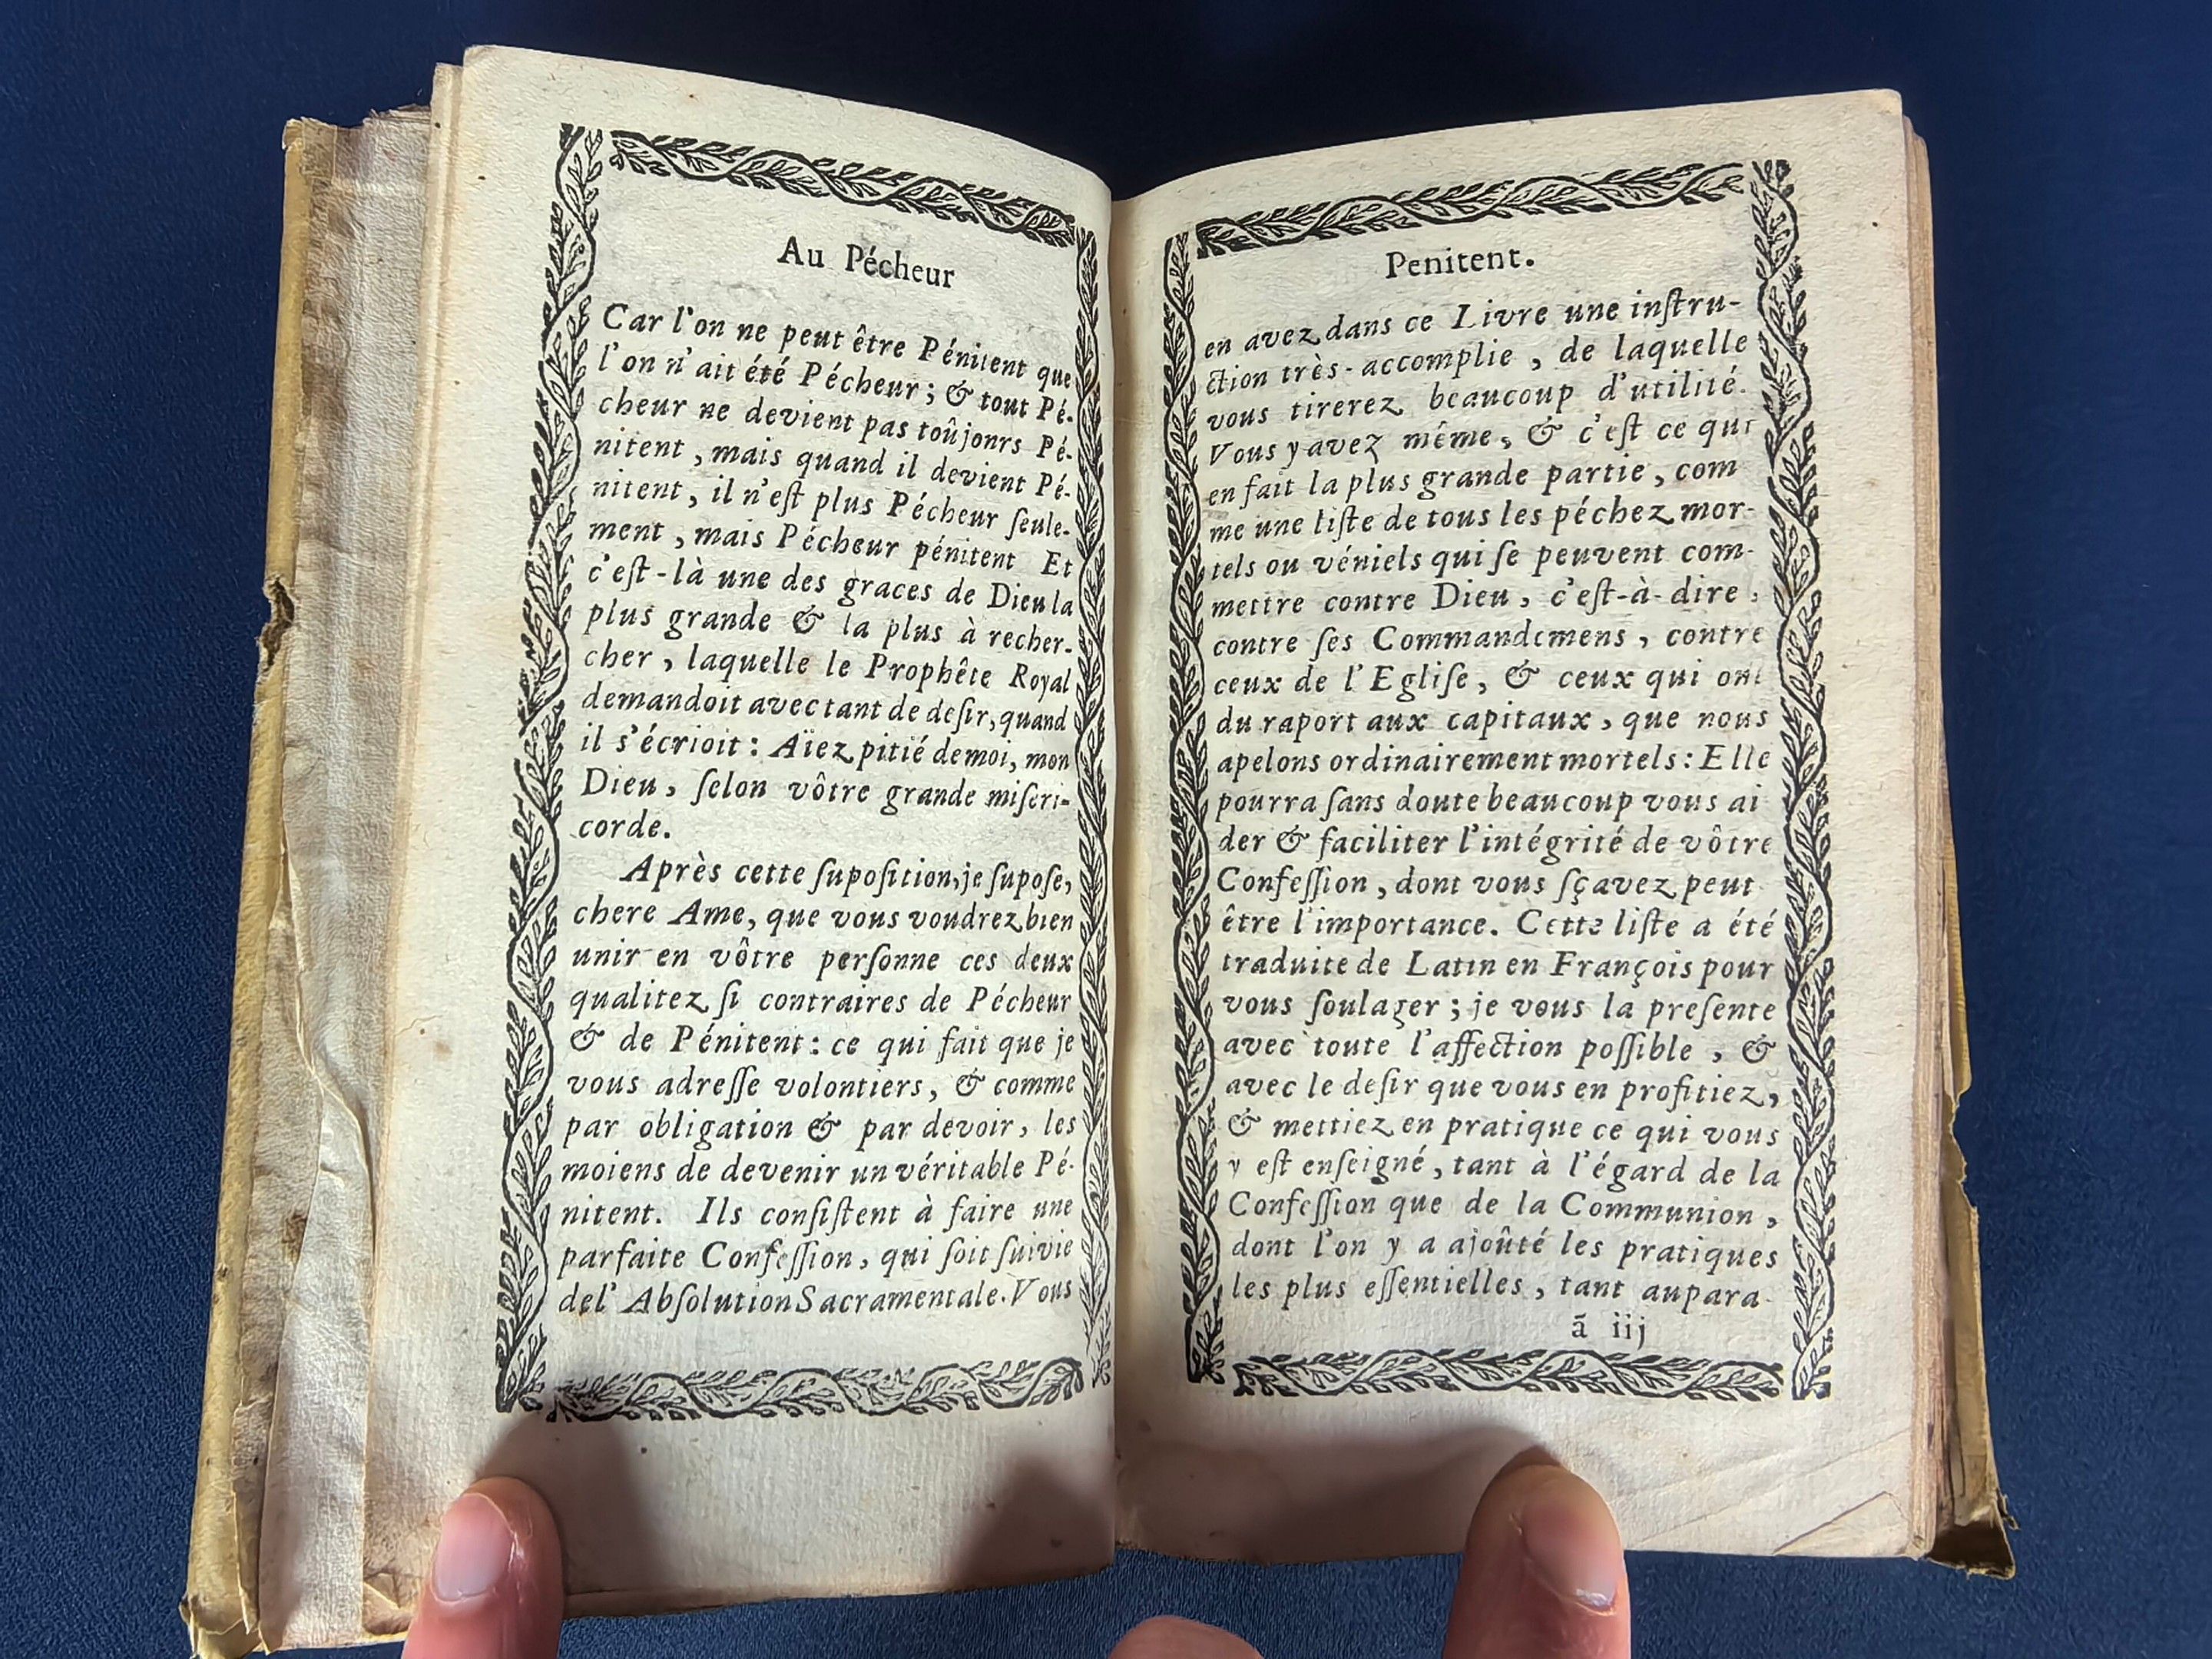 Au Pécheur
Car l'on ne peut être Pénitent que
l'on n'ait été Pécheur ; & tout Pé-
cheur ne devient pas toûjonrs Pé-
nitent, mais quand il devient Pé-
nitent, il n'eſt plus Pécheur ſeule-
ment, mais Pécheur pénitent Et
c'eſt-là une des graces de Dieu la
plus grande & la plus à recher-
cher, laquelle le Prophête Royal
demandoit avec tant de deſir, quand
il s'écrioit : Aïez pitié de moi, mon
Dieu, ſelon vôtre grande miſeri-
corde.
Après cette ſupoſition, je ſupoſe,
chere Ame, que vous voudrez bien
unir en vôtre perſonne ces deux
qualitez ſi contraires de Pécheur
& de Pénitent : ce qui fait que je
vous adreſſe volontiers, & comme
par obligation & par devoir, les
moiens de devenir un véritable Pé-
nitent. Ils conſiſtent à faire une
parfaite Confeſſion, qui ſoit ſuivie
de l'Abſolution Sacramentale. Vous
Penitent.
en avez dans ce Livre une inſtru-
ction très-accomplie, de laquelle
vous tirerez beaucoup d'utilité.
Vous y avez même, & c'eſt ce qui
en fait la plus grande partie, com
me une liſte de tous les péchez mor-
tels ou véniels qui ſe peuvent com-
mettre contre Dieu, c'eſt-à-dire,
contre ſes Commandemens, contre
ceux de l'Egliſe, & ceux qui ont
du raport aux capitaux, que nous
apelons ordinairement mortels : Elle
pourra ſans doute beaucoup vous ai
der & faciliter l'intégrité de vôtre
Confeſſion, dont vous ſçavez peut
être l'importance. Cette liſte a été
traduite de Latin en François pour
vous ſoulager ; je vous la preſente
avec toute l'affection poſſible, &
avec le deſir que vous en profitiez,
& mettiez en pratique ce qui vous
y eſt enſeigné, tant à l'égard de la
Confeſſion que de la Communion,
dont l'on y a ajoûté les pratiques
les plus eſſentielles, tant aupara-
ã iij